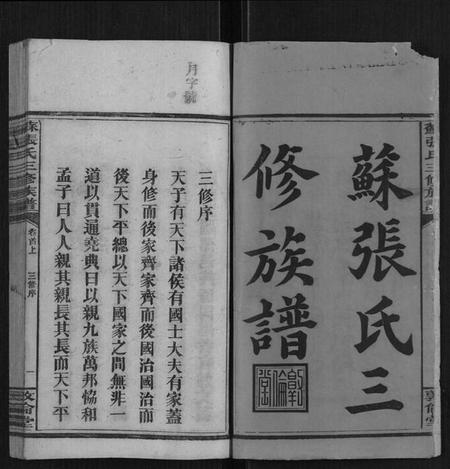 蘇張氏三修族譜
蘇張氏三
修族譜
敦倫堂
敦倫堂
月字號
三修序
天子有天下諸侯有國士大夫有家蓋
身修而後家齊家齊而後國治國治而
後天下平總以天下國家之間無非一
道以貫通堯典曰以親九族萬邦恊和
孟子曰人人親其親長其長而天下平
蘇張氏三修族譜
卷首上
三修序
一
敦倫堂